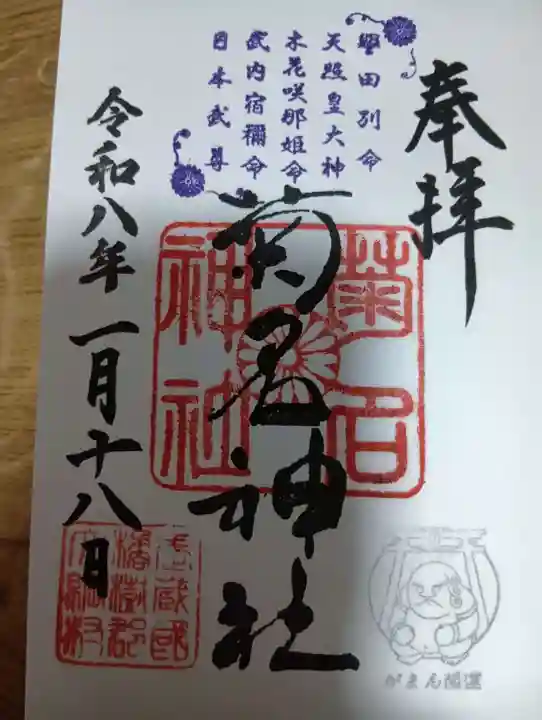 奉拝
譽田別命
天照皇大神
木花咲耶姫命
武内宿禰命
日本武尊
菊名神社
菊名
神社
令和八年一月十八日
武蔵國
橘樹郡
がまん開運